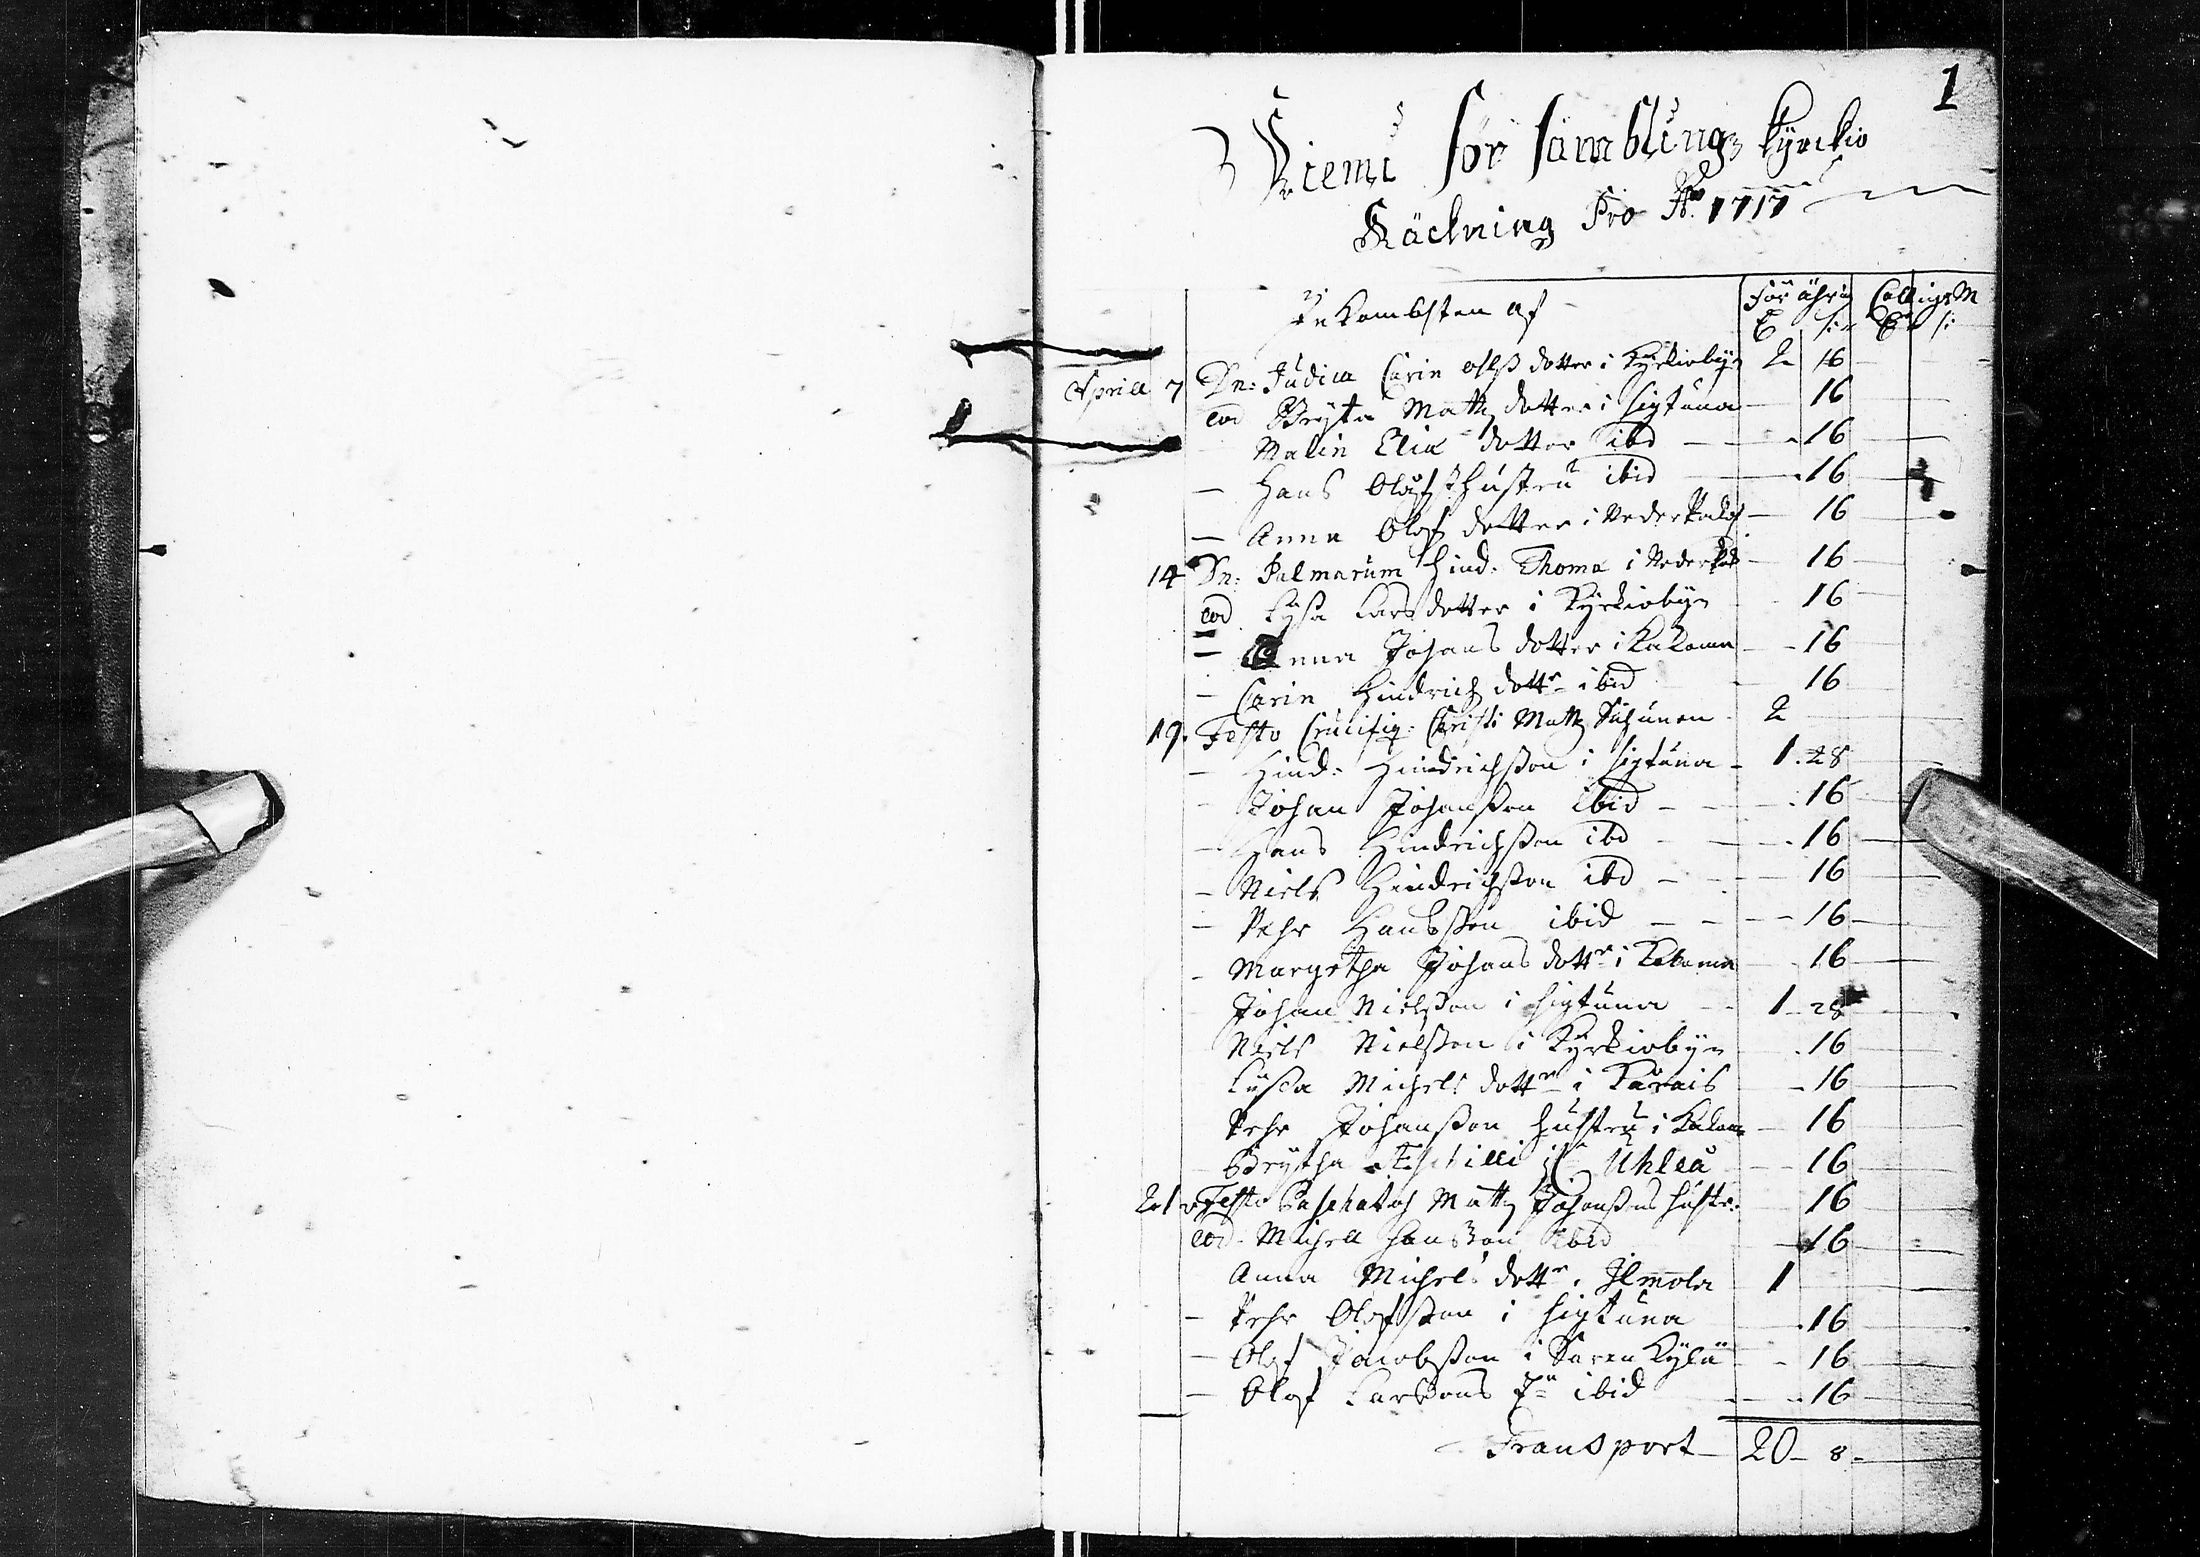 1
Kiemi församblingz kyrckio
Räckning Pro Ao. 1717
Inkombsten af
För ährig Collig: M
April 7 Dn: Judica Carin olss dotter i Kyrkiobyn 2 16
eod Brijta Matz dotter i Sigtuna 16
Malin Eliæ dotter ibd 16
— Hans Olufs hustru ibid 16
— Anna Olofs dotter i 16
14 Dn: Palmarum Hind: Thomæ i 16
eod Lisa Larsdotter i Kyrkiobyn 16
— Anna Johans dotter i Kakama 16
— Carin Hindrichs dottr ibid 16
19. Festo Crucifix: Christi Matz 2
— Hind: Hindrichsson i Sigtuna 1. 28
— Johan Johansson ibid 16
— Hans Hindrichsson ibd 16
— Niels Hindrichsson ibd 16
— Pehr Hansson ibid 16
— Margetha Johans dottr i Kakama 16
Johan Nielsson i Sigtuna 1 28
Niels Nielsson i Kyrkiobyn 16
Lijsa Michels dottr i 16
Pehr Johansson hustru i Kakama 16
Brijtha Eschilli Uhleå 16
21 Festo Paschatos Matz Johanssons hustr: 16
eod. Michell Hansson ibid 16
Anna Michels dottr. Ilmola 1
— Pehr Olofsson i Sigtuna 16
— Olof Jacobsson i Saren Kylä 16
— Olof Larssons ibid 16
Transport 20 8